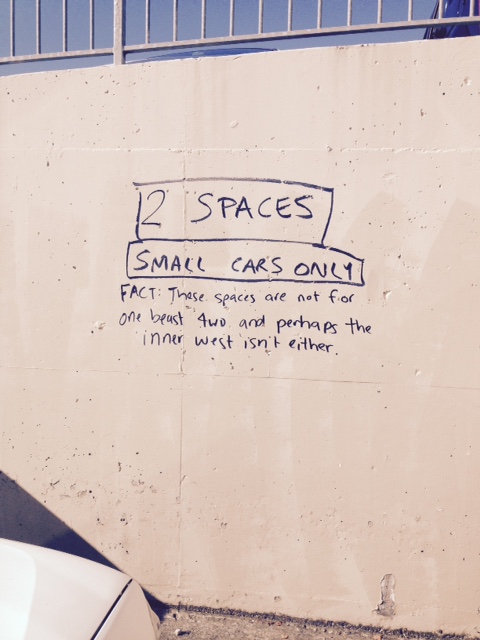 2 SPACES
SMALL CARS ONLY
FACT: These spaces are not for
one beast 4wD and perhaps the
inner west isn't either.